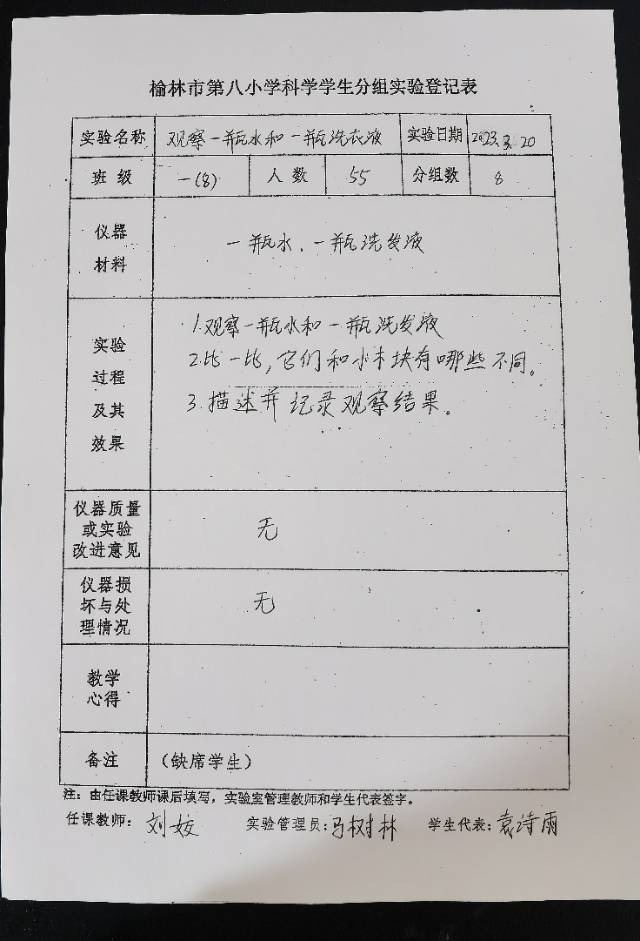 榆林市第八小学科学学生分组实验登记表
实验名称 观察一瓶水和一瓶洗衣液 实验日期 2023.3.20
班级 一(8) 人数 55 分组数 8
仪器
材料
一瓶水、一瓶洗发液
实验
过程
及其
效果
1.观察一瓶水和一瓶洗发液
2.比一比,它们和小木块有哪些不同。
3.描述并记录观察结果。
仪器质量
或实验
改进意见
无
仪器损
坏与处
理情况
无
教学
心得
备注 (缺席学生)
注:由任课教师课后填写,实验室管理教师和学生代表签字。
任课教师:刘姣 实验管理员:马树林 学生代表:袁诗雨